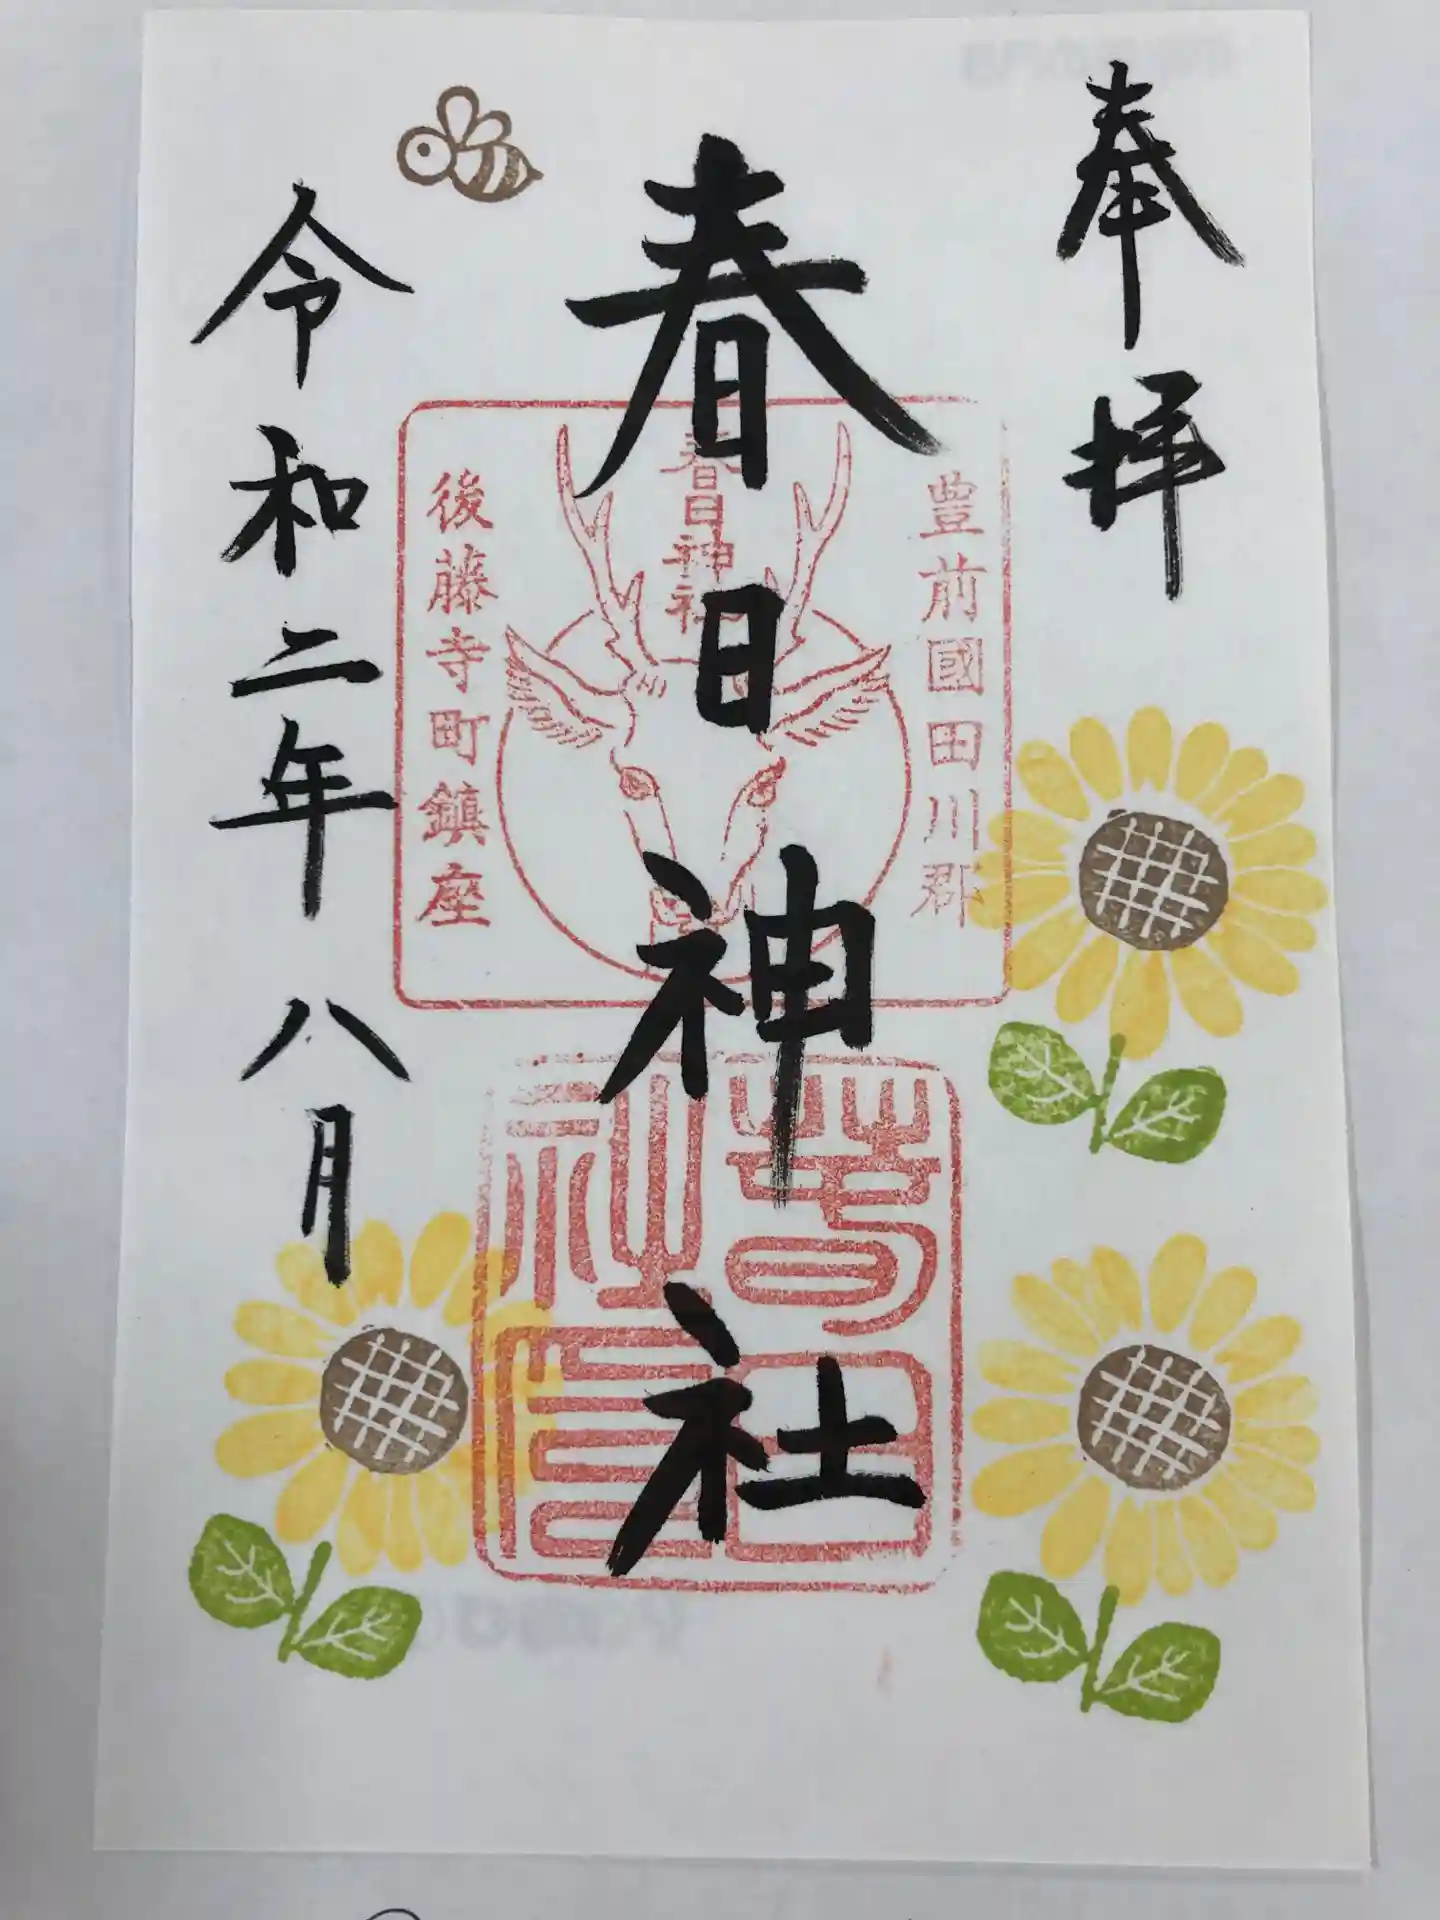 奉拝
春日神社
令和二年八月
豊前國田川郡
春日神社
後藤寺町鎮座